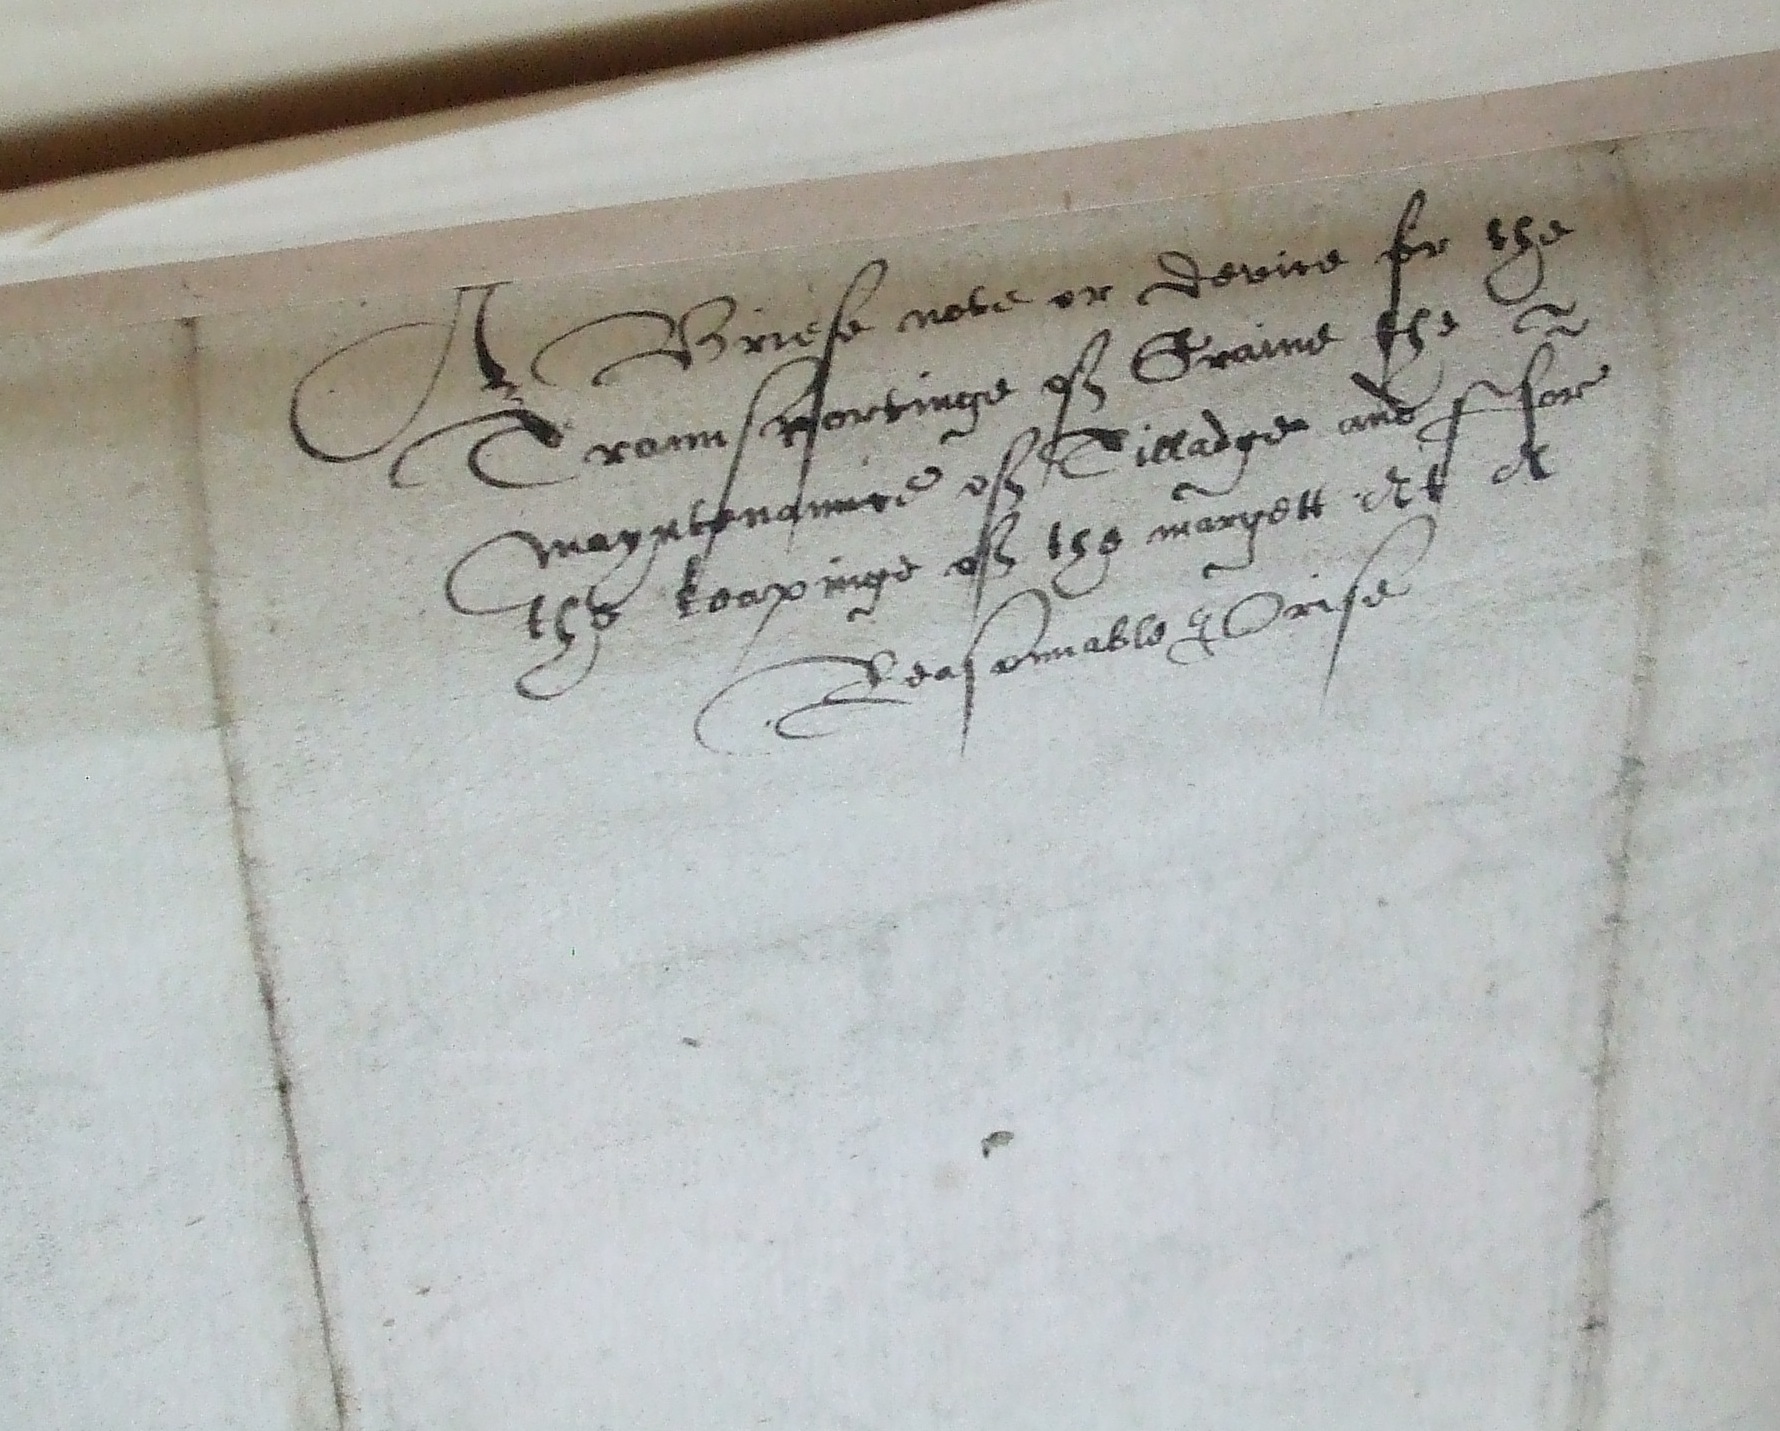 A Briefe note or devise for the
Transportinge of Graine the
mayntenannce of Tilladge and for
the keapinge of the markett At A
Reasonnable Prise